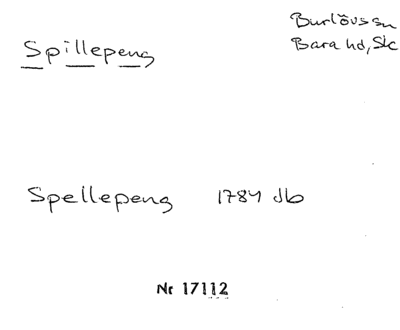 Burlövs sn
Spillepeng
Bara hd, Sk
Spellepeng 1784 db
Nr 17112